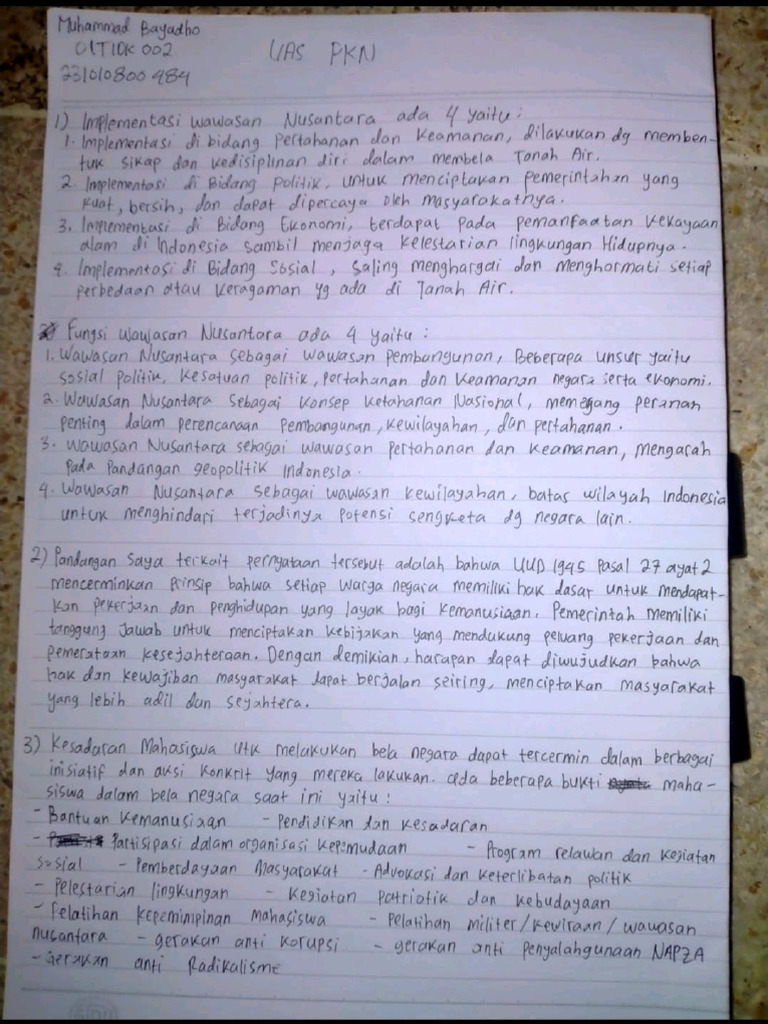 Muhammad Bayadho
01TIDK 002
231010800484
UAS PKN
1) Implementasi wawasan Nusantara ada 4 yaitu:
1. Implementasi di bidang pertahanan dan keamanan, dilakukan dg memben-
tuk sikap dan kedisiplinan diri dalam membela Tanah Air.
2. Implementasi di Bidang politik, untuk menciptakan pemerintahan yang
kuat, bersih, dan dapat dipercaya oleh masyarakatnya.
3. Implementasi di Bidang Ekonomi, terdapat pada pemanfaatan kekayaan
alam di Indonesia sambil menjaga kelestarian lingkungan Hidupnya.
4. Implementasi di Bidang Sosial, saling menghargai dan menghormati setiap
perbedaan atau keragaman yg ada di Tanah Air.
Fungsi wawasan Nusantara ada 4 yaitu:
1. Wawasan Nusantara sebagai wawasan pembangunan, Beberapa unsur yaitu
sosial politik, kesatuan politik, pertahanan dan keamanan negara serta ekonomi.
2. Wawasan Nusantara sebagai konsep ketahanan Nasional, memegang peranan
penting dalam perencanaan pembangunan, kewilayahan, dan pertahanan.
3. Wawasan Nusantara sebagai wawasan pertahanan dan keamanan, mengarah
pada pandangan geopolitik Indonesia.
4. Wawasan Nusantara sebagai wawasan kewilayahan, batas wilayah Indonesia
untuk menghindari terjadinya potensi sengketa dg negara lain.
2) Pandangan saya terkait pernyataan tersebut adalah bahwa UUD 1945 Pasal 27 ayat 2
mencerminkan prinsip bahwa setiap warga negara memiliki hak dasar untuk mendapat-
kan pekerjaan dan penghidupan yang layak bagi kemanusiaan. Pemerintah memiliki
tanggung jawab untuk menciptakan kebijakan yang mendukung peluang pekerjaan dan
pemerataan kesejahteraan. Dengan demikian, harapan dapat diwujudkan bahwa
hak dan kewajiban masyarakat dapat berjalan seiring, menciptakan masyarakat
yang lebih adil dan sejahtera.
3) Kesadaran Mahasiswa utk melakukan bela negara dapat tercermin dalam berbagai
inisiatif dan aksi konkrit yang mereka lakukan. ada beberapa bukti maha-
siswa dalam bela negara saat ini yaitu:
- Bantuan kemanusiaan - Pendidikan dan kesadaran
- Partisipasi dalam organisasi kepemudaan - Program relawan dan kegiatan
sosial - Pemberdayaan Masyarakat - Advokasi dan keterlibatan politik
- Pelestarian lingkungan - Kegiatan patriotik dan kebudayaan
- Pelatihan kepemimpinan Mahasiswa - Pelatihan militer/kewiraan/wawasan
nusantara - gerakan anti korupsi - gerakan anti penyalahgunaan NAPZA
- Gerakan anti Radikalisme